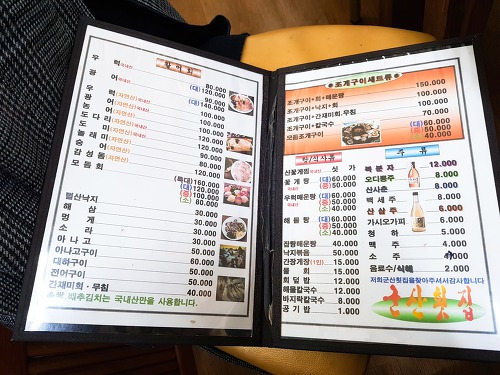 활어회
우 럭 국내산 80.000
(대)120.000
광 어 국내산 90.000
(대)140.000
우 럭(자연산)국내산 100.000
광 어(자연산)국내산 120.000
농 어(자연산)국내산 100.000
도 다 리
도 미
놀 래 미
숭 어
감 성 돔
모 듬 회 (특대)160.000
(대)120.000
(중)100.000
(소) 80.000
뻘산낙지
해 삼 30.000
멍 게 30.000
소 라 30.000
아 나 고 50.000
아나고구이 50.000
대하구이 50.000
전어구이 50.000
간재미회·무침 40.000
배추김치는 국내산만을 사용합니다.
조개구이세트류
조개구이+회+매운탕 150.000
조개구이+낙지+회 100.000
조개구이+간재미회.무침 100.000
조개구이+칼국수 70.000
모듬조개구이 (대)60.000
(중)50.000
(소)40.000
탕/식사류
산꽃게찜 국내산 싯 가
꽃 게 탕 국내산 (대)60.000
(중)50.000
우럭매운탕 국내산 (대)60.000
(중)50.000
(소)40.000
해 물 탕 (대)60.000
(중)50.000
잡탕매운탕 40.000
낙지볶음 50.000
간장게장(1인) 15.000
물 회 15.000
회 덮 밥 12.000
해물칼국수 12.000
바지락칼국수 8.000
공 기 밥 1.000
주 류
복 분 자 12.000
오디뽕주 8.000
산사춘 8.000
백 세 주 8.000
산 삼 주 6.000
가시오가피 6.000
청 하 5.000
맥 주 4.000
소 주 4.000
음료수/식혜 2.000
저희군산횟집을찾아주셔서감사합니다
군산횟집